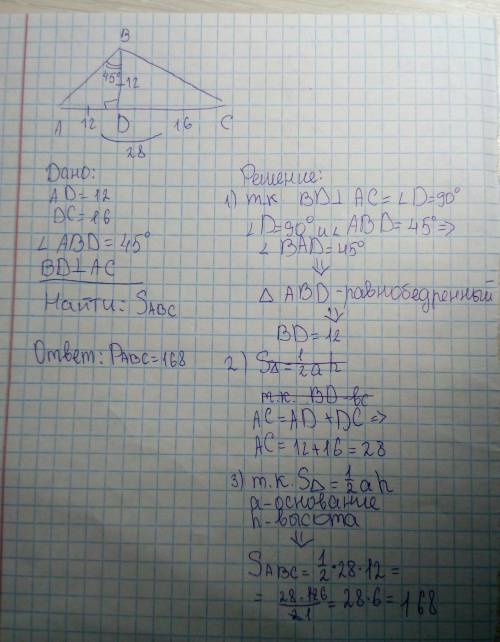 B
45° 12
A 12 D 16 C
28
Дано:
AD = 12
DC = 16
∠ ABD = 45°
BD⊥AC
Найти: S_ABC
Ответ: P_ABC = 168
Решение:
1) т.к BD⊥ AC = ∠D = 90°
∠D = 90° и ∠ ABD = 45° =>
∠ BAD = 45°
⇓
△ ABD - равнобедренный
⇓
BD = 12
2) S△ = 1/2 a h
т.к. BD - вс
AC = AD + DC =>
AC = 12 + 16 = 28
3) т.к. S△ = 1/2 a h
a - основание
h - высота
⇓
S_ABC = 1/2 · 28 · 12 =
= 28 · 12 6 / 2 1 = 28 · 6 = 168